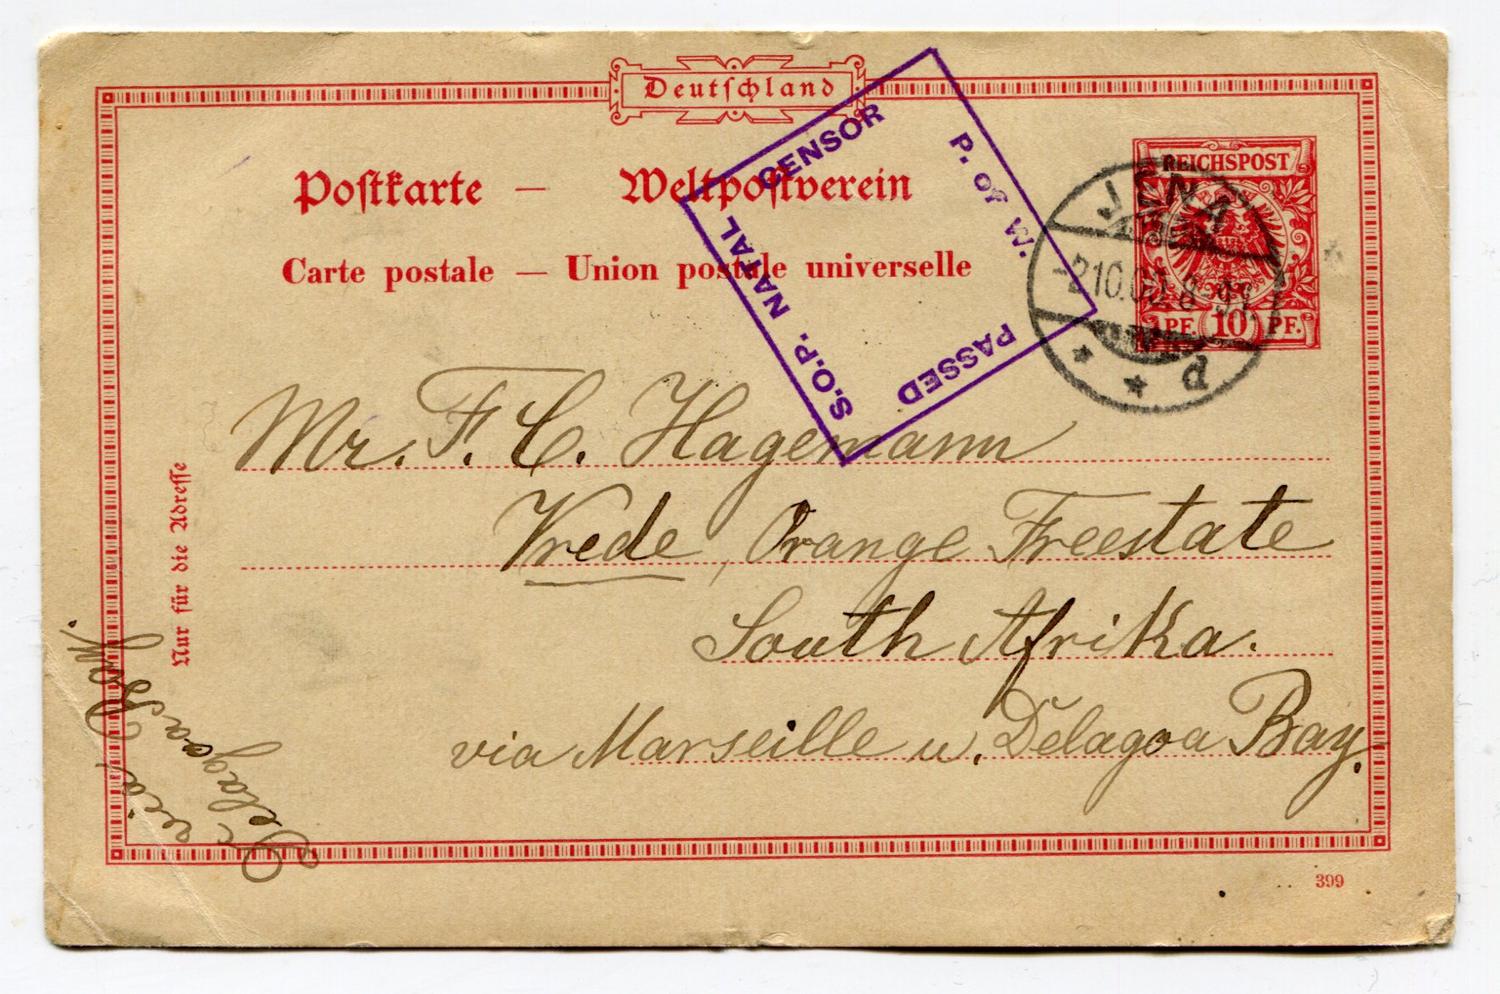 Deutschland
Postkarte — Weltpostverein
Carte postale — Union postale universelle
REICHSPOST
PF. 10 PF.
JENA
-2.10.00. 8-9V.
d
CENSOR
P. of W.
PASSED
S.O.P. NATAL
Mr. F. C. Hagemann
Vrede, Orange Freestate
South Afrika.
via Marseille u. Delagoa Bay.
Nur für die Adresse
via Delagoa Bay.
399